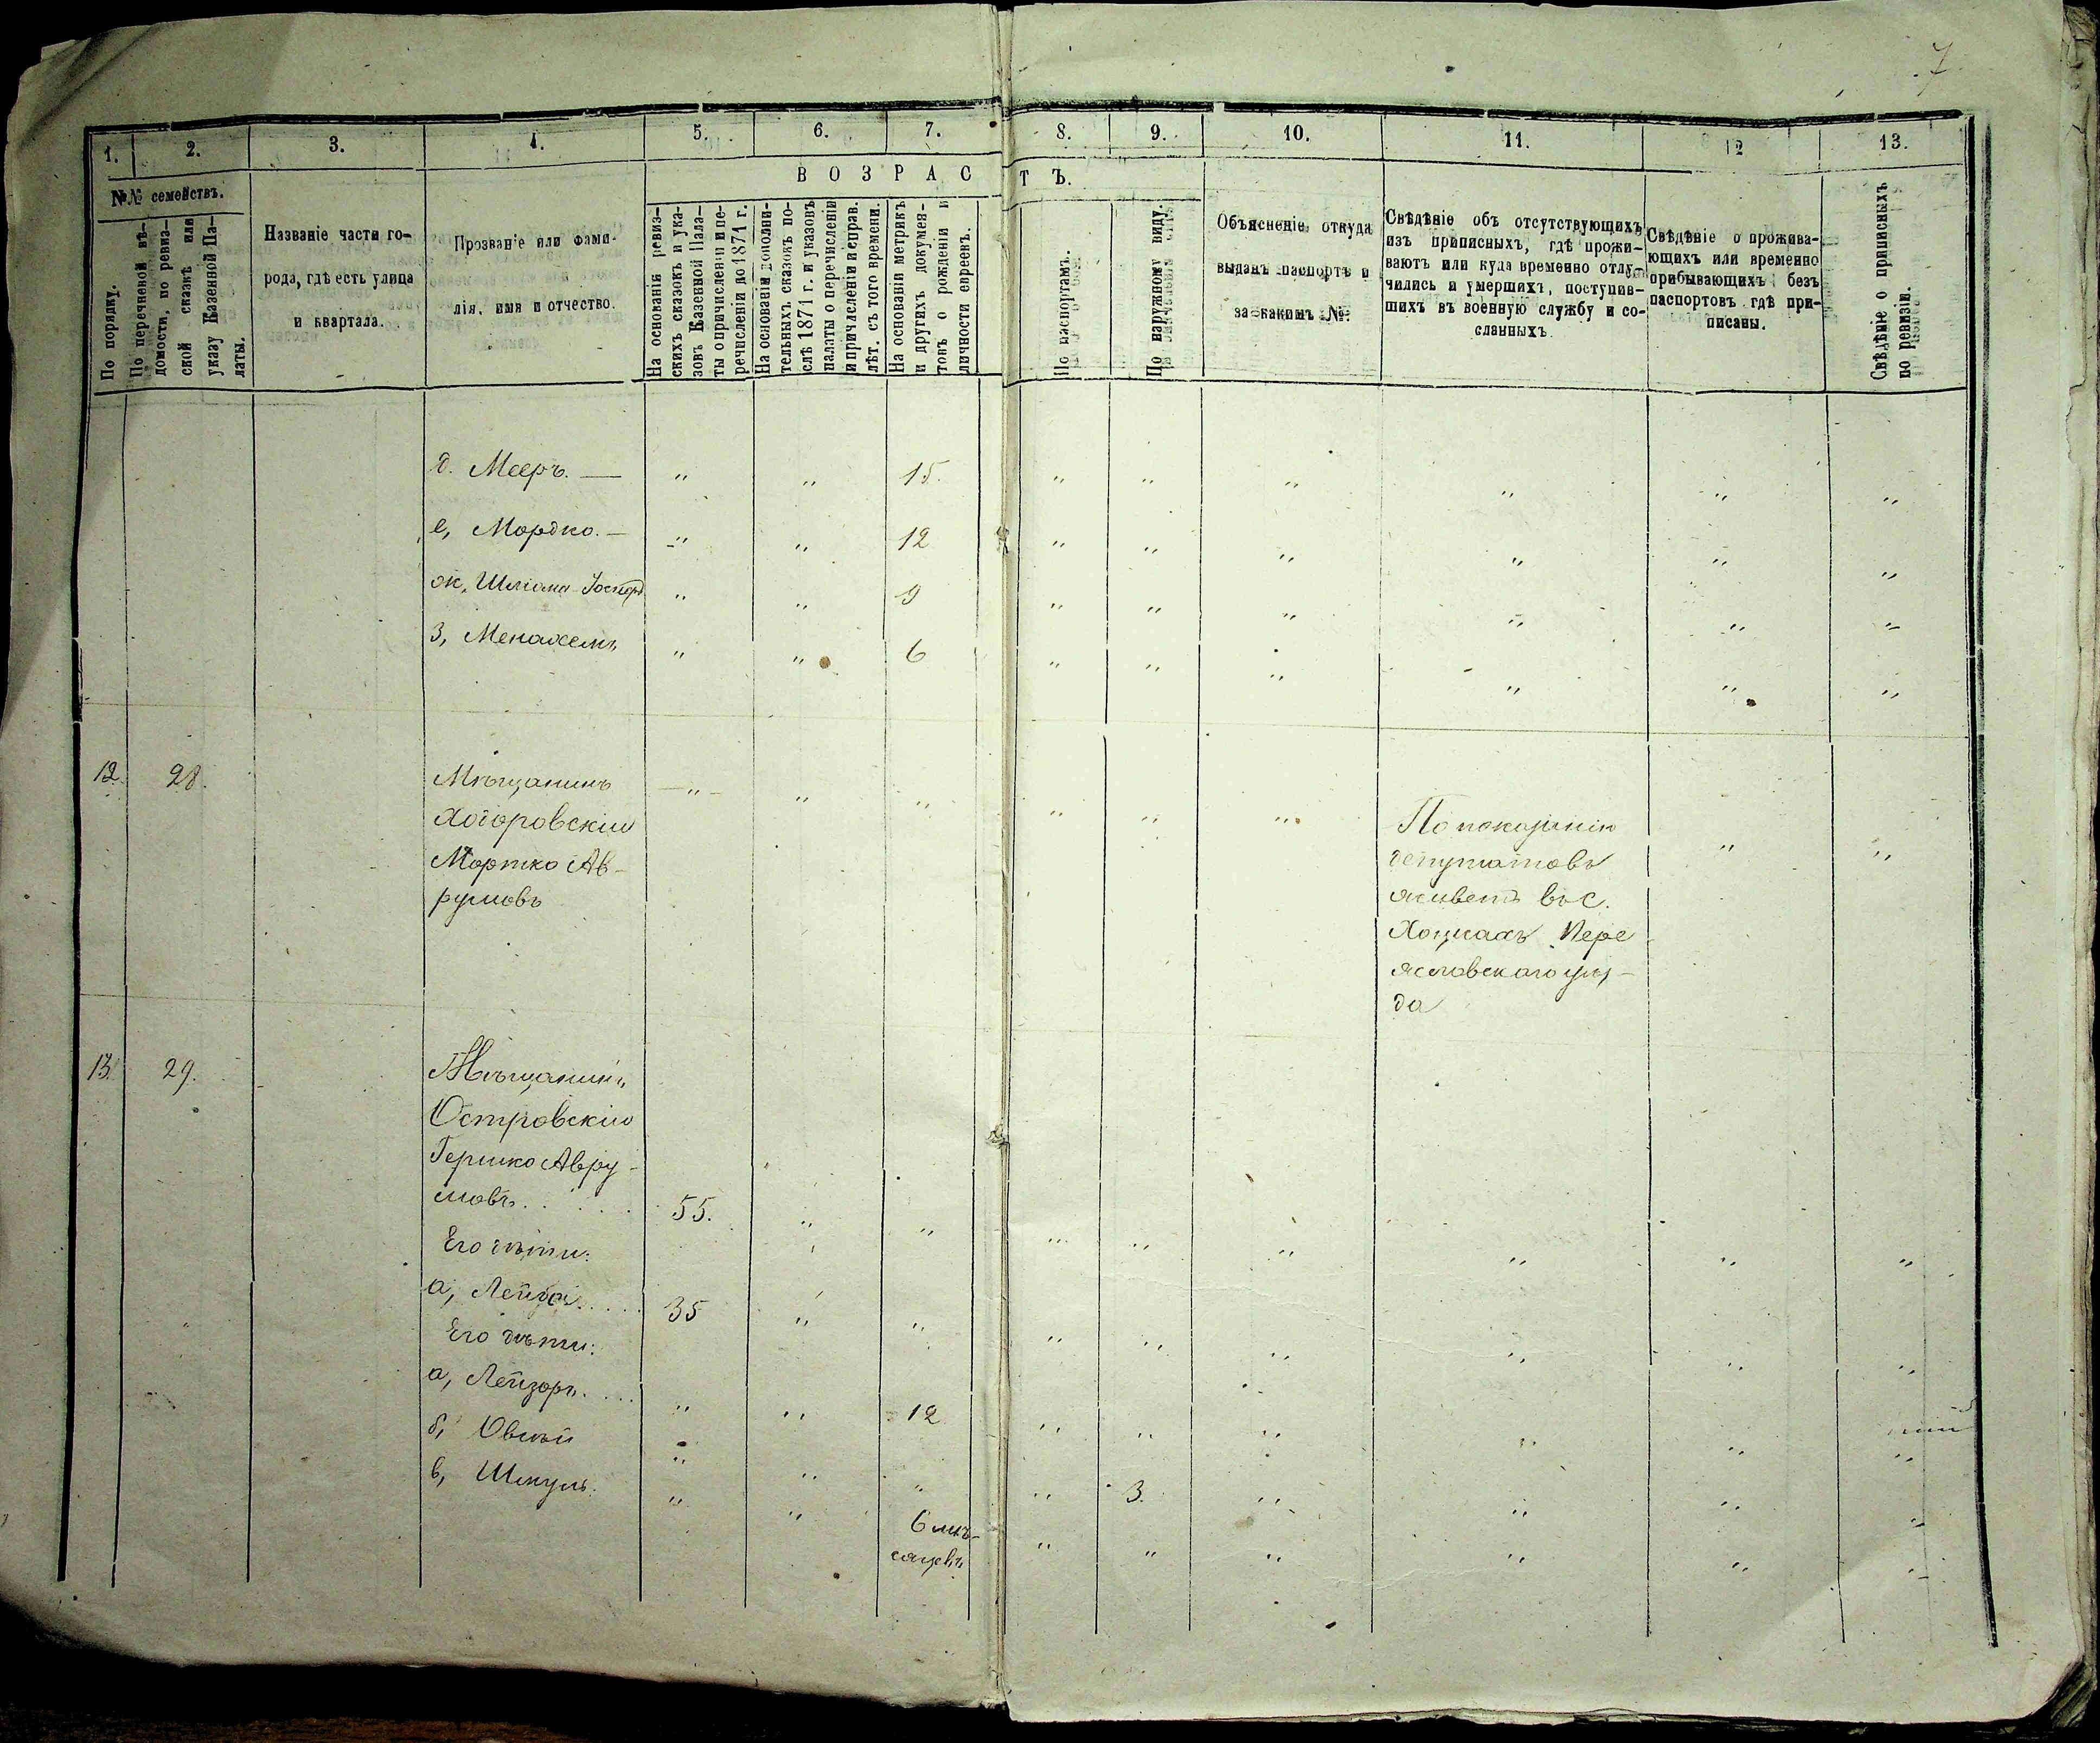 7
1. 2. 3. 4. 5. 6. 7. 8. 9. 10. 11. 12 13.
№№ семействъ.
В О З Р А С Т Ъ.
По порядку.
По перечневой вѣ-
домости, по ревиз-
ской сказкѣ или
указу Казенной Па-
латы.
Названіе части го-
рода, гдѣ есть улица
и квартала.
Прозваніе или фами-
лія, имя и отчество.
На основаніи ревиз-
скихъ сказокъ и ука-
зовъ Казенной Пала-
ты о причисленіи и пе-
речисленіи до 1871 г.
На основаніи дополни-
тельныхъ сказокъ по-
слѣ 1871 г. и указовъ
палаты о перечисленіи
и причисленіи и справ.
лѣт. съ того времени.
На основаніи метрикъ
и другихъ докумен-
товъ о рожденіи и
личности евреевъ.
По паспортамъ.
По наружному виду.
Объясненіе откуда
выданъ паспортъ и
за какимъ №.
Свѣдѣніе объ отсутствующихъ
изъ приписныхъ, гдѣ прожи-
ваютъ или куда временно отлу-
чились и умершихъ, поступив-
шихъ въ военную службу и со-
сланныхъ.
Свѣдѣніе о прожива-
ющихъ или временно
прибывающихъ безъ
паспортовъ гдѣ при-
писаны.
Свѣдѣніе о приписныхъ
по ревизіи.
д. Мееръ. — " " 15. " " " " " "
е, Мордко. — " " 12 " " " " " "
ж, Шлиома " " 9 " " " " " "
з, Менахемъ " " 6 " " " " " "
12. 28. Мѣщанинъ — " — " " " " " " "
Хогоровскій
Мортко Ав-
румовъ
По показанію
депутатовъ
живетъ въ с.
Хоцкахъ Пере
яславскаго уѣз-
да
13. 29. Мѣщанинъ
Островскій
Гершко Авру-
мовъ. . . . . . 55. " " " " " " " "
Его дѣти:
а, 35 " " " " " " " "
Его дѣти:
а, Лейзоръ. . . . " " 12 " " " " " "
б, Овшѣй " " " " 3. " " " "
в, Шмуль. " " 6 мѣ- " " " " " "
сяцевъ